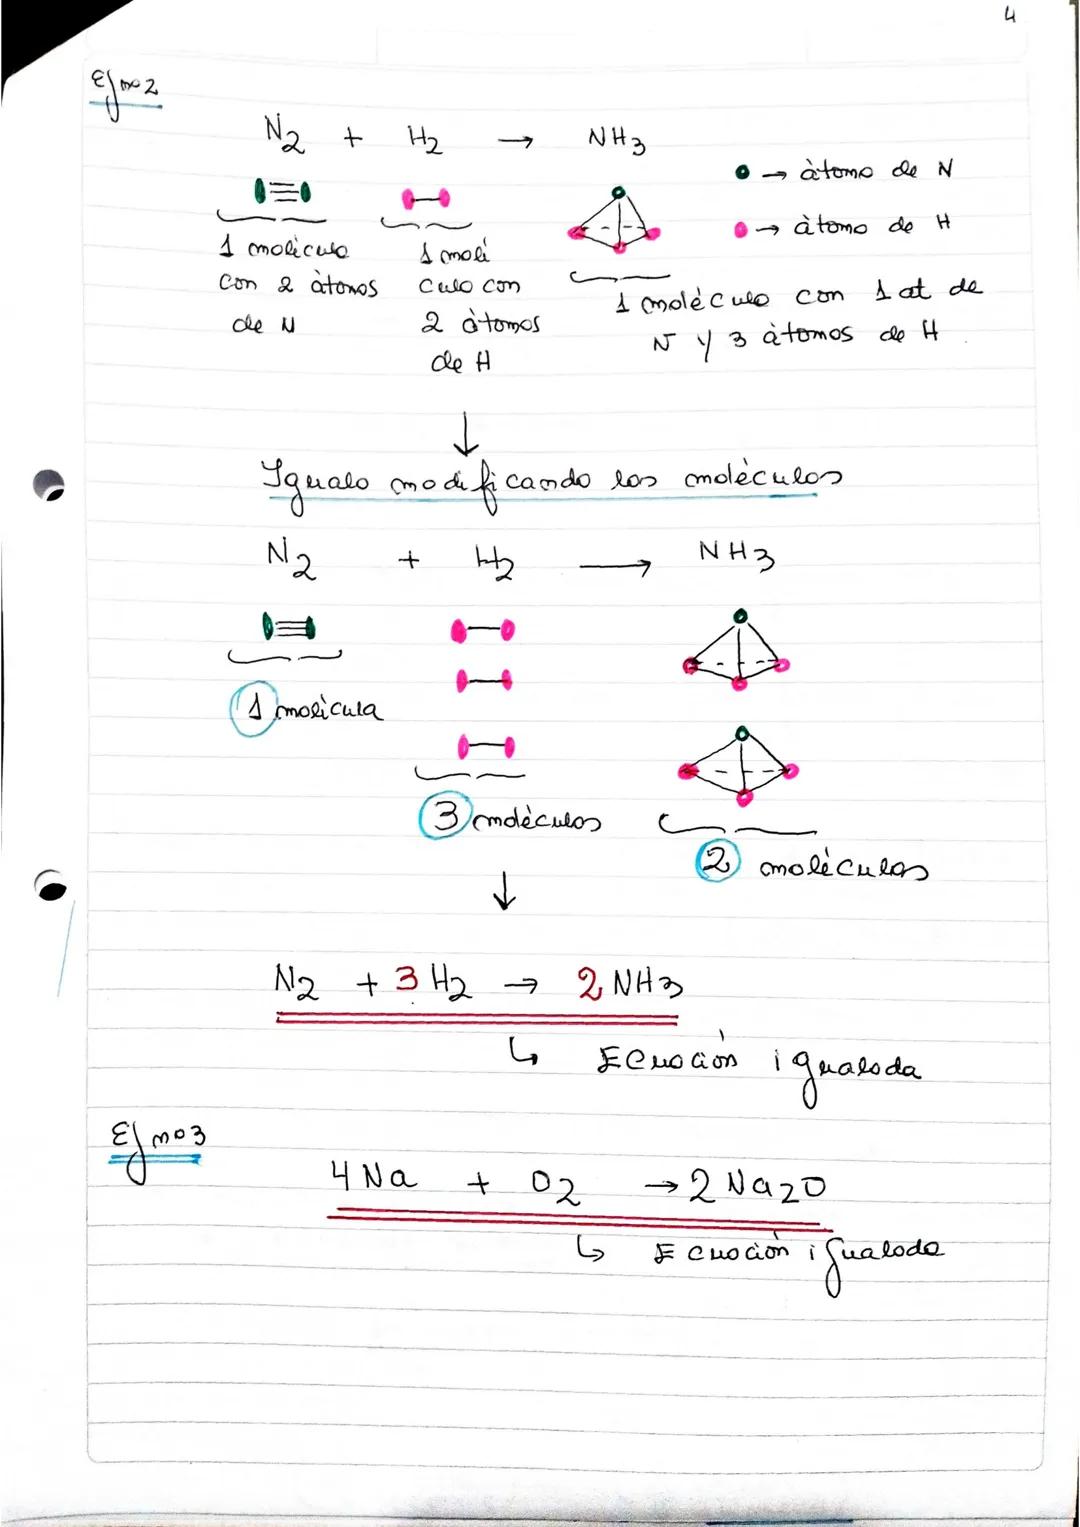 4
Ej no 2
N2 + H2 → NH3
→ àtomo de N
→ àtomo de H
1 molécula con 2 àtomos de N
1 molécula con 2 àtomos de H
1 molécula con 1 at de N y 3 àtomos de H.
↓
Igualo modificando las moléculas
N2 + H2 → NH3
1 molécula
3 moléculas
2 moléculas
↓
N2 + 3 H2 → 2 NH3
↳ Ecuación igualada
Ej no 3
4 Na + O2 → 2 Na2O
↳ Ecuación igualada